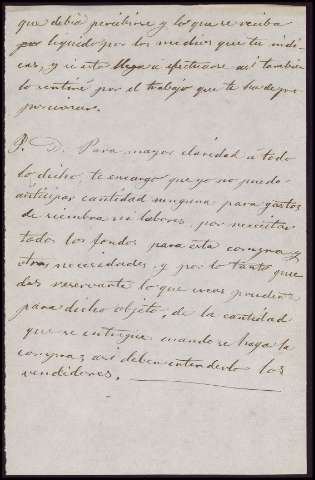 que debía percibirse y lo que se reciba
por líquido por los medios que tu indi-
cas, y si esto llega a efectuarse así tambien
lo sentiré por el trabajo que te ha de pro-
porcionar.
P. D. Para mayor claridad á todo
lo dicho, te encargo que yo no puedo
anticipar cantidad ninguna para gastos
de siembra ni labores, por necesitar
todos los fondos para esta compra y
otras necesidades, y por lo tanto que
das reservarte lo que creas prudente
para dicho objeto, de la cantidad
que se entregue cuando se haga la
compra; así deben entenderlo los
vendidores.